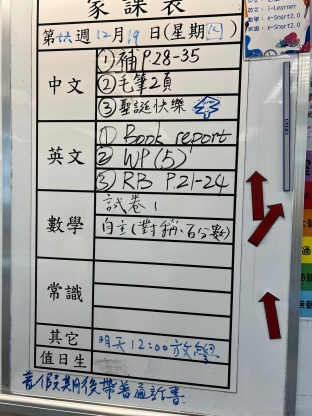 家課表
第十六週12月19日(星期四)
中文
①補P.28-35
②毛筆2頁
③聖誕快樂
英文
① Book report
② WP(5)
③ RB P.21-24
數學
試卷1
自主(對稱、百分數)
常識
其它
明天12:00放學
值日生
i-Learner
e-Smart2.0
e-Smart2.0